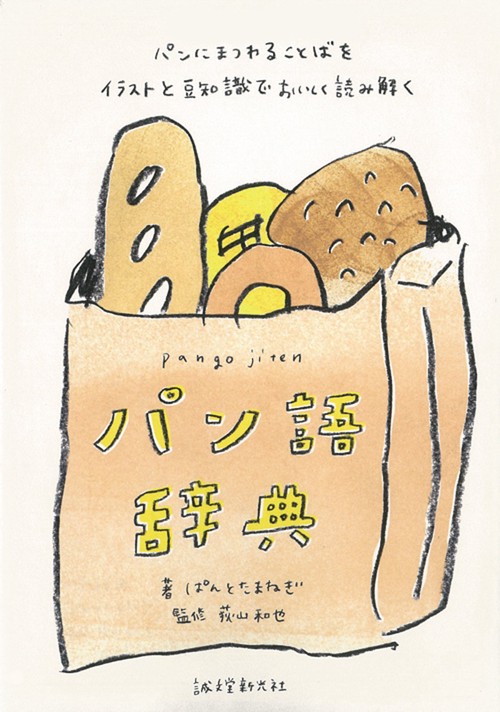 パンにまつわることばを
イラストと豆知識でおいしく読み解く
pango jiten
パン語
辞典
著 ぱんとたまねぎ
監修 荻山和也
誠文堂新光社